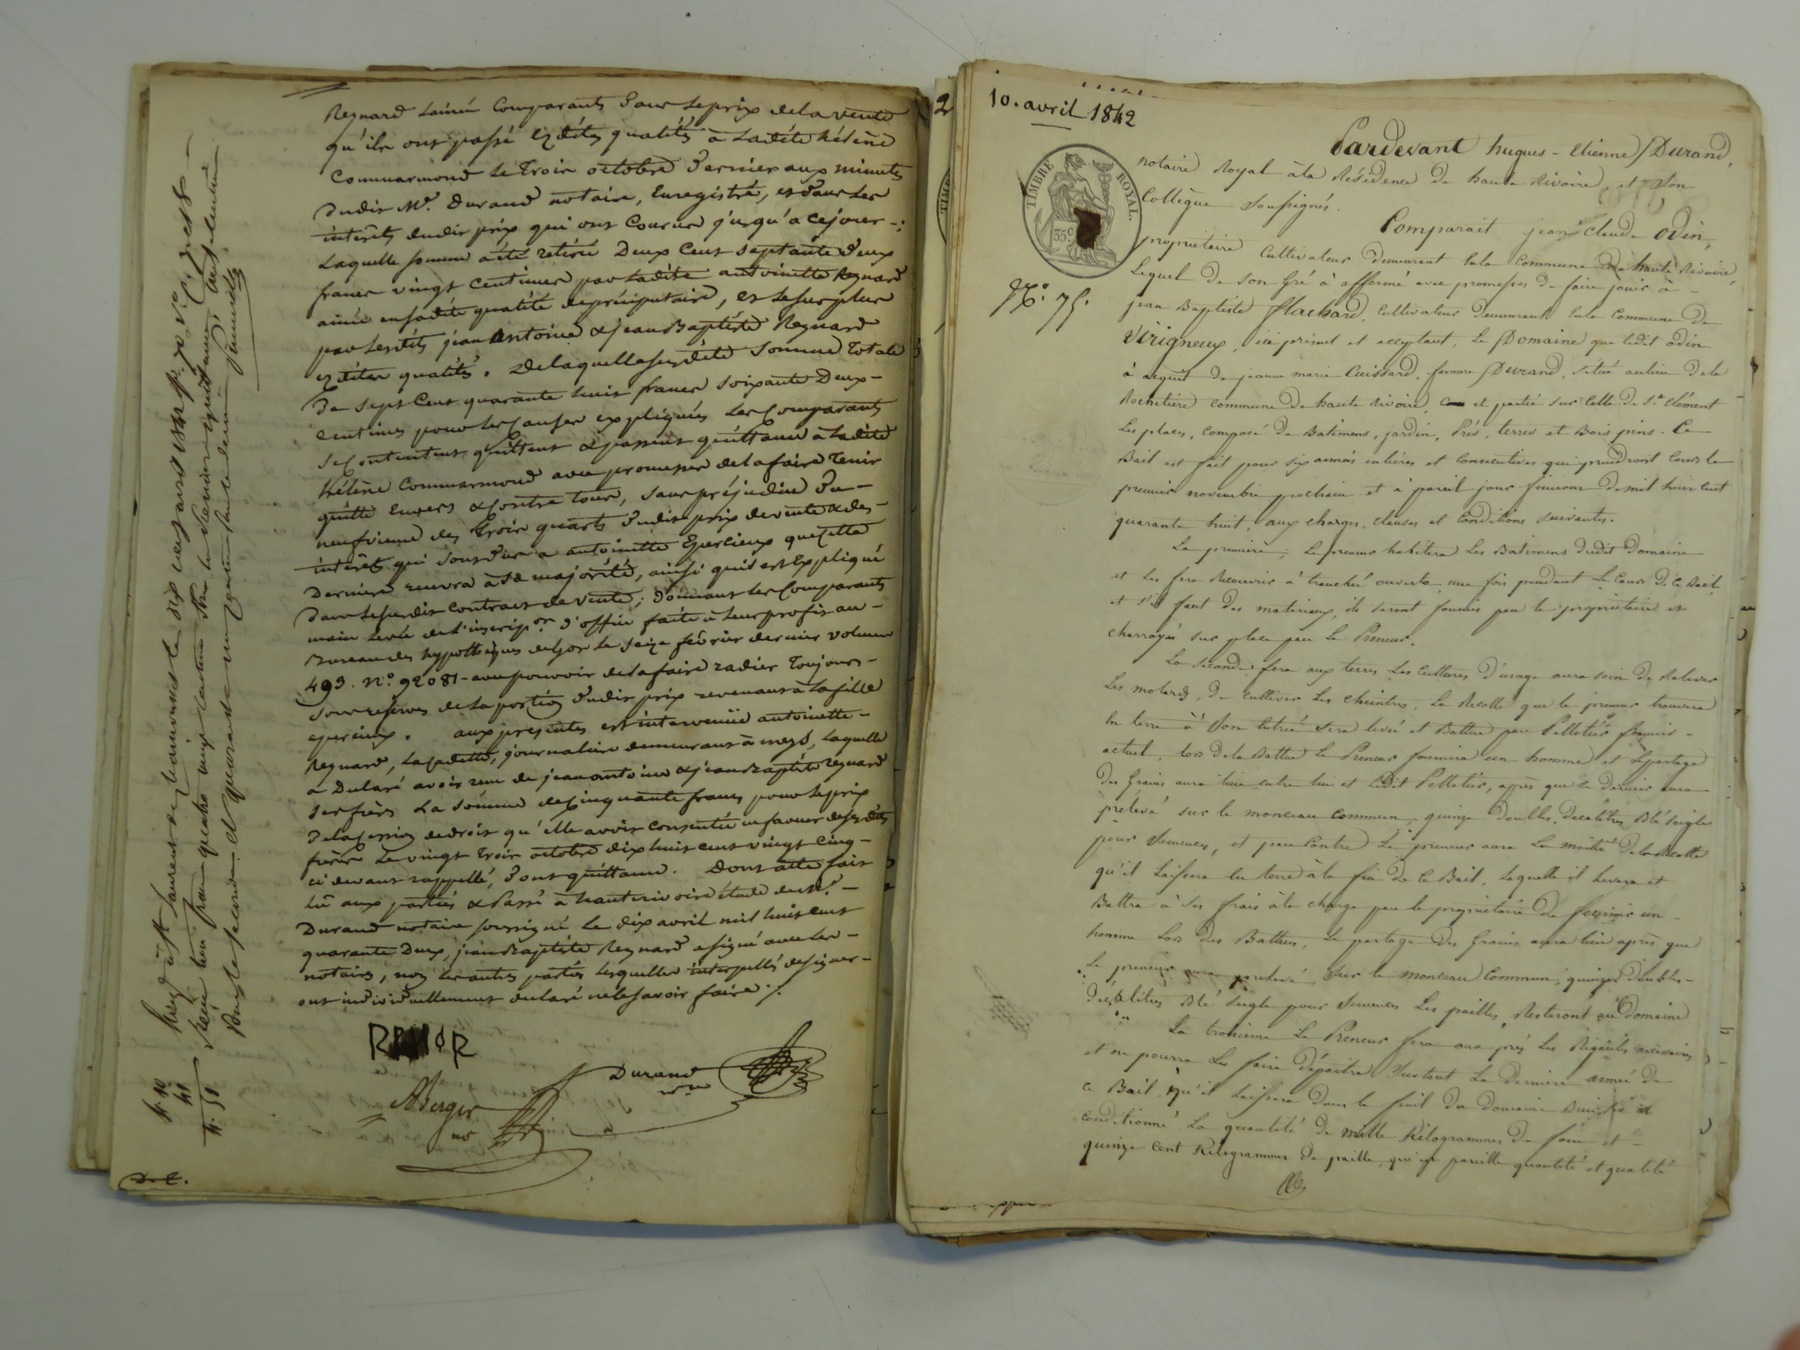 Reynard Lainée Comparants Sans le prix de la vente
qu'ils ont passé ezdites qualités à Ladite hélène
Commarmond le Trois octobre Dernier aux minutes
Dudit Me. Durand notaire, Enregistré, et Sans les
intérêts dudit prix qui ont Courus jusqu'à ce jour
Laquelle somme a été retirée Deux Cent Septante Deux
francs vingt Centimes par Ladite antoinette Reynard
ainée en sadite qualité de préciputaire, et le surplus
par Lesdits jean Antoine & jean Baptiste Reynard
ezdites qualités. De laquelle susdite Somme Totale
De Sept Cent quarante huit francs Soixante Deux
Centimes pour les Causes expliquées Les Comparants
Se Contentent quittent & passent quittance à Ladite
hélène Commarmond avec promesse de la faire Tenir
quitte Envers & Contre tous, Sans préjudice Du
neuvième des Trois quarts Dudit prix de vente & des
intérêts qui Sont dus a antoinette Epercieux que Cette
Dernière recevra à Sa majorité, ainsi qu'il est Expliqué
Dans le susdit Contrat de vente; Donnant Les Comparants
main Levée de l'inscripon. D'office faite à Leur profit au
Bureau des hypothèques de Lyon le Seize février dernier volume
493. No. 92081 avec pouvoir de la faire radier Toujours
Sous réserves de La portion Dudit prix revenant à La fille
epercieux. aux présentes est intervenüe antoinette
Reynard, La Cadette, journalière demeurant à meys, Laquelle
a Declaré avoir reçu de jean antoine & jean Baptiste reynard
Ses frères La Somme de Cinquante francs pour le prix
De la Cession de droit qu'elle avoit Consentie en faveur de sesdits
frères Le vingt Trois octobre Dix huit cent vingt Cinq
ci devant rappellé, Dont quittance. Dont acte fait
Lu aux parties & Passé à haute rivoire étude dudit Me.
Durand notaire soussigné Le dix avril mil huit cent
quarante Deux, jean Baptiste Reynard a signé avec les
notaires, non les autres parties Lesquelles interpellés de signer
ont individuellement declaré ne le savoir faire ./.
Durand
nre
ABerger
no
4. 10
41
4. 51
10. avril 1842
TIMBRE ROYAL.
35 c
Pardevant hugues - Etienne Durand,
notaire Royal à la Résidence de haute Rivoire, et Son
Collègue Soussignés.
Comparait jean Claude Odin,
proprietaire Cultivateur demeurant En la Commune de haute Rivoire,
Lequel de Son Gré à affermé avec promesses de faire jouir à
jean Baptiste flachard, Cultivateur demeurant En la Commune de
Virigneux, ici présent et acceptant, Le Domaine que ledit odin
à acquit de jeanne marie Cuissard, femme Durand, Situé au lieu de la
Rochetière Commune de haute Rivoire, et partie Sur Celle de St. Clément
Les places, Composé de Batimens, jardin, Prés, terres et Bois pins. Ce
Bail est fait pour Six années entières et Consécutives qui prendront Cours le
premier novembre prochain et à pareil jour finiront de mil huit Cent
quarante huit, aux charges, clauses et Conditions Suivantes.
La première, Le preneur habitera Les Batimens dudit Domaine
et Les fera Recouvrir à tranché ouverte une fois pendant Le Cours de ce Bail,
et S'il faut des matériaux, ils Seront fournis par le proprietaire et
charroyés Sur place par Le Preneur.
La Seconde, fera aux terres Les Cultures d'usage aura soin de Relever
Les motards, de cultiver Les Cheintres, La Récolte que le preneur trouvera
En terre à Son Entrée Sera levée et Battue par Pelletier fermier
actuel, Lors de la Battue Le Preneur fournira un homme et Le partage
des Grains aura lieu entre lui et Ledit Pelletier, après que Ce dernier aura
prélevé Sur le monceau Commun, quinze doubles Décalitres Blé Seigle
pour Semences, et par Contre Le preneur aura La moitié de la récolte
qu'il Laissera En terre à la fin de Ce Bail, Laquelle il Levera et
Battra à Ses frais à la charge par le proprietaire de fournir un
homme Lors des Battues, Le partage des Grains aura lieu après que
Le preneur aura prélevé Sur le monceau Commun, quinze Doubles
décalitres Blé Seigle pour Semences Les pailles Resteront au Domaine
La troisième Le Preneur fera aux prés Les Rigoles nécessaires
et ne pourra Les faire dépaitre Surtout La dernière année de
Ce Bail, qu'il Laissera dans le fenil du domaine Bien Sec et
conditionné La quantité de Mille Kilogrammes de foin et
quinze Cent Kilogrammes de paille, qui est pareille quantité et qualité